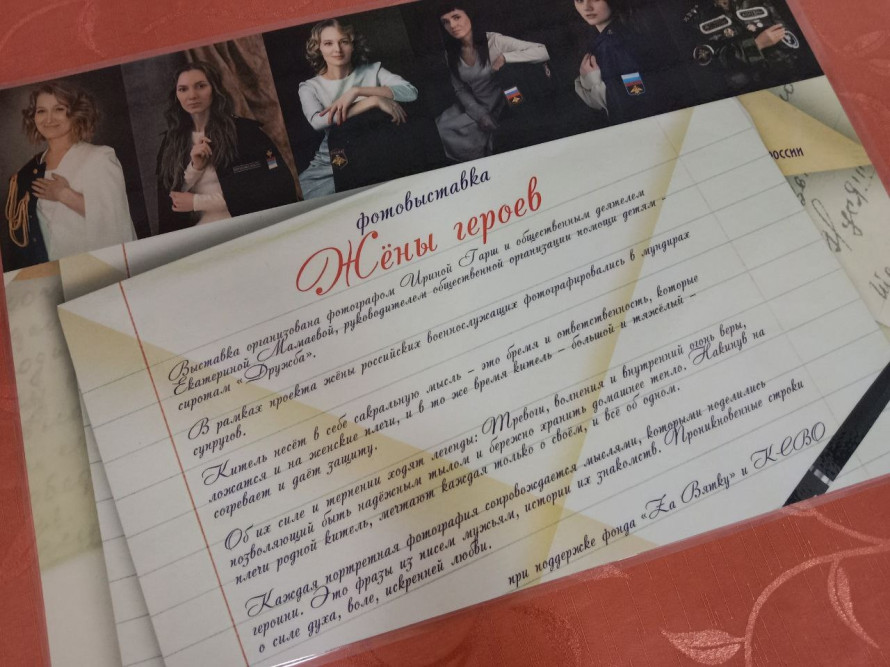 фотовыставка
Жёны героев
Выставка организована фотографом Ириной Гарш и общественным деятелем
Екатериной Мамаевой, руководителем общественной организации помощи детям -
сиротам «Дружба».
В рамках проекта жёны российских военнослужащих фотографировались в мундирах
супругов.
Китель несёт в себе сакральную мысль – это бремя и ответственность, которые
ложатся и на женские плечи, и в то же время китель – большой и тяжёлый –
согревает и даёт защиту.
Об их силе и терпении ходят легенды: Тревоги, волнения и внутренний огонь веры,
позволяющий быть надёжным тылом и бережно хранить домашнее тепло. Накинув на
плечи родной китель, мечтают каждая только о своём, и всё об одном.
Каждая портретная фотография сопровождается мыслями, которыми поделились
героини. Это фразы из писем мужьям, истории их знакомств. Проникновенные строки
о силе духа, воле, искренней любви.
при поддержке фонда «Zа Вятку» и К-СВО
России